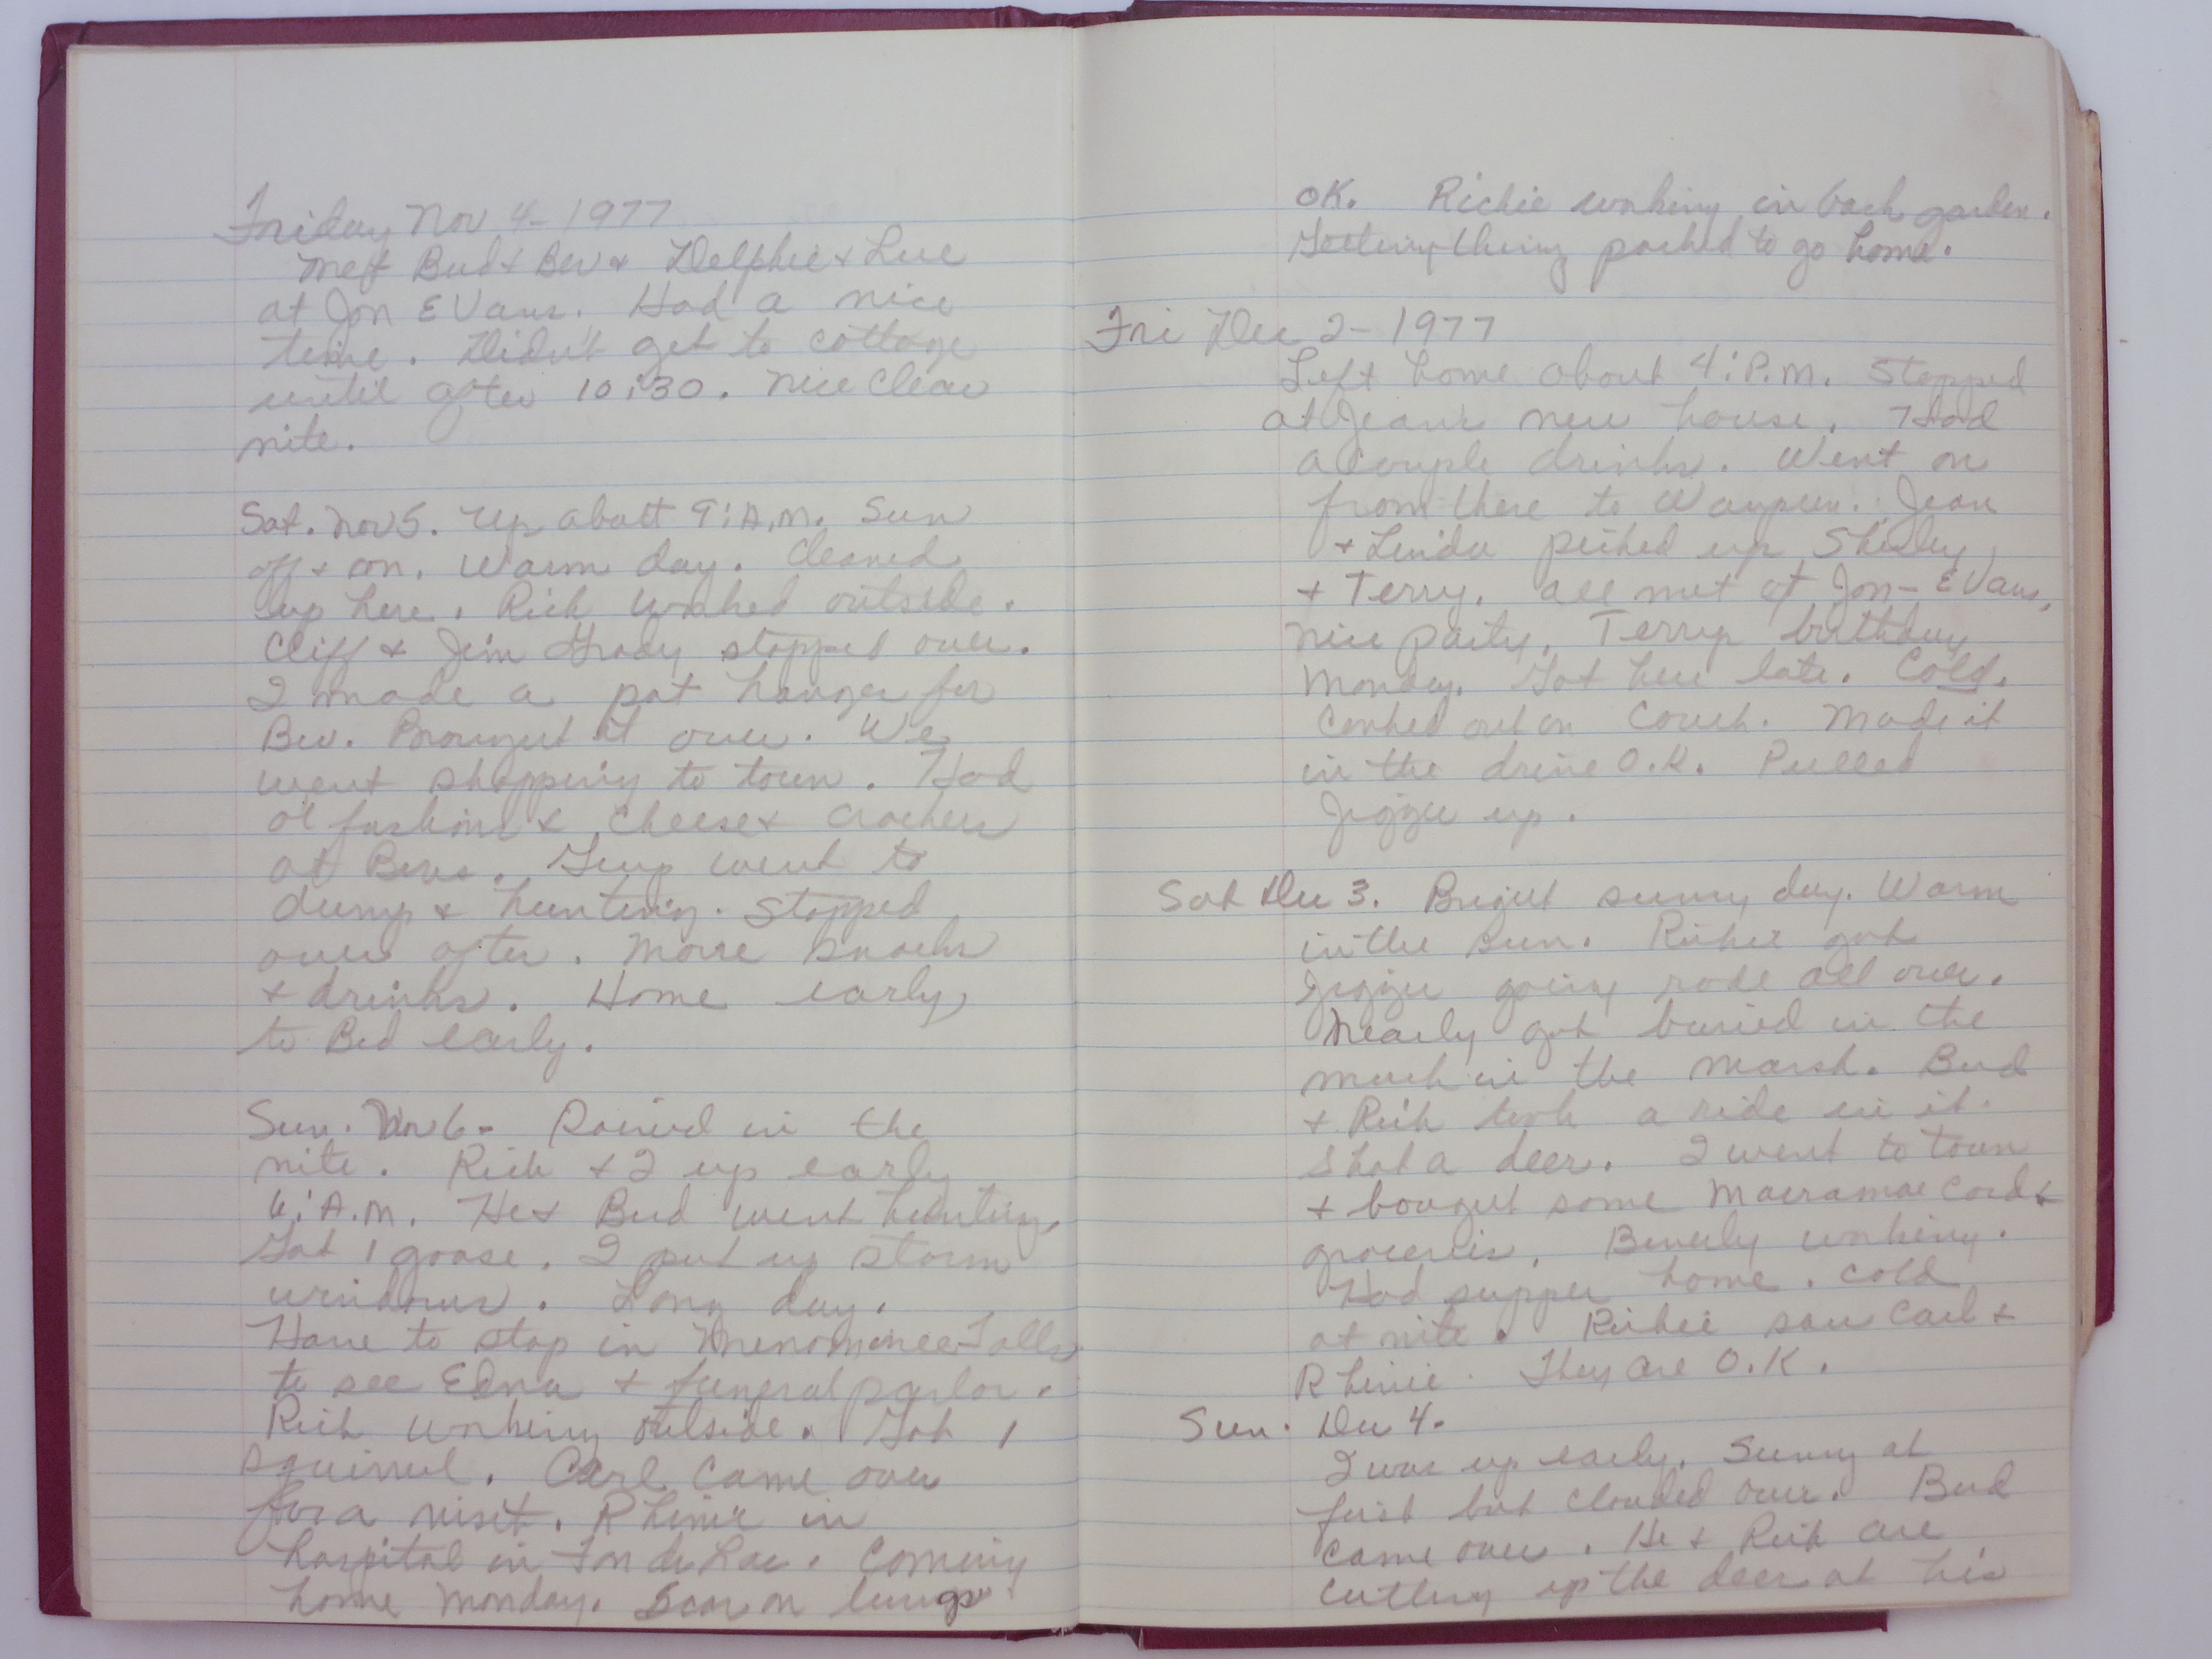 Friday Nov 4-1977
Met Bud & Bev & Delphie & Lue
at Jon Evans. Had a nice
time. Didn't get to cottage
until after 10:30. Nice clear
nite.
Sat. Nov 5. Up abott 9:A.M. Sun
off & on. Warm day. Cleaned
up here. Rich worked outside.
Cliff & Jim Grady stopped over.
I made a pot hanger for
Bev. Brought it over. We
went shopping to town. Had
ol fashions & cheese & crackers
at Bevs. Guys went to
dump & hunting. Stopped
over after. More snacks
& drinks. Home early,
to Bed early.
Sun. Nov 6- Rained in the
nite. Rich & I up early
6:A.M. He & Bud went hunting.
Got 1 goose. I put up storm
windows. Long day.
Have to stop in Menomonee Falls
to see Edna & funeral parlor.
Rich working outside. Got 1
squirrel. Carl came over
for a visit. Rhinie in
hospital in Fon du Lac. Coming
home Monday. Scar on lungs
OK. Richie working in back garden.
Getting things packed to go home.
Fri Dec 2-1977
Left home about 4:P.M. Stopped
at Jean's new house. Had
a couple drinks. Went on
from there to Waupun. Jean
& Linda picked up Shirley
& Terry. All met at Jon-Evans,
nice party. Terrys birthday
Monday. Got here late. Cold.
Conked out on couch. Made it
in the drive O.K. Pulled
Jigger up.
Sat Dec 3. Bright sunny day. Warm
in the sun. Richie got
Jigger going rode all over.
Nearly got buried in the
muck in the marsh. Bud
& Rich took a ride in it.
Shot a deer. I went to town
& bought some Macramae cord &
groceries. Beverly working.
Had supper home. Cold
at nite. Richie saw Carl &
Rhinie. They are O.K.
Sun. Dec 4.
I was up early. Sunny at
first but clouded over. Bud
came over. He & Rich are
cutting up the deer at his